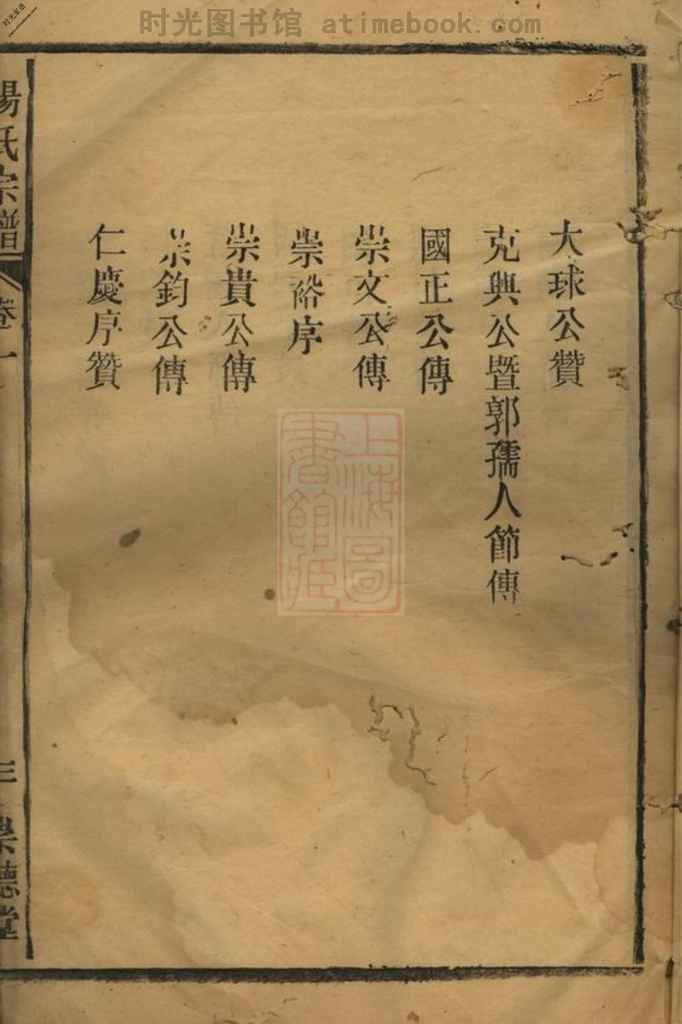 时光图书馆 atimebook.com
大球公贊
克興公暨郭孺人節傳
國正公傳
崇文公傳
崇裕序
崇貴公傳
崇鈞公傳
仁慶序贊
楊氏宗譜 卷一 三 崇德堂
上海圖書館藏